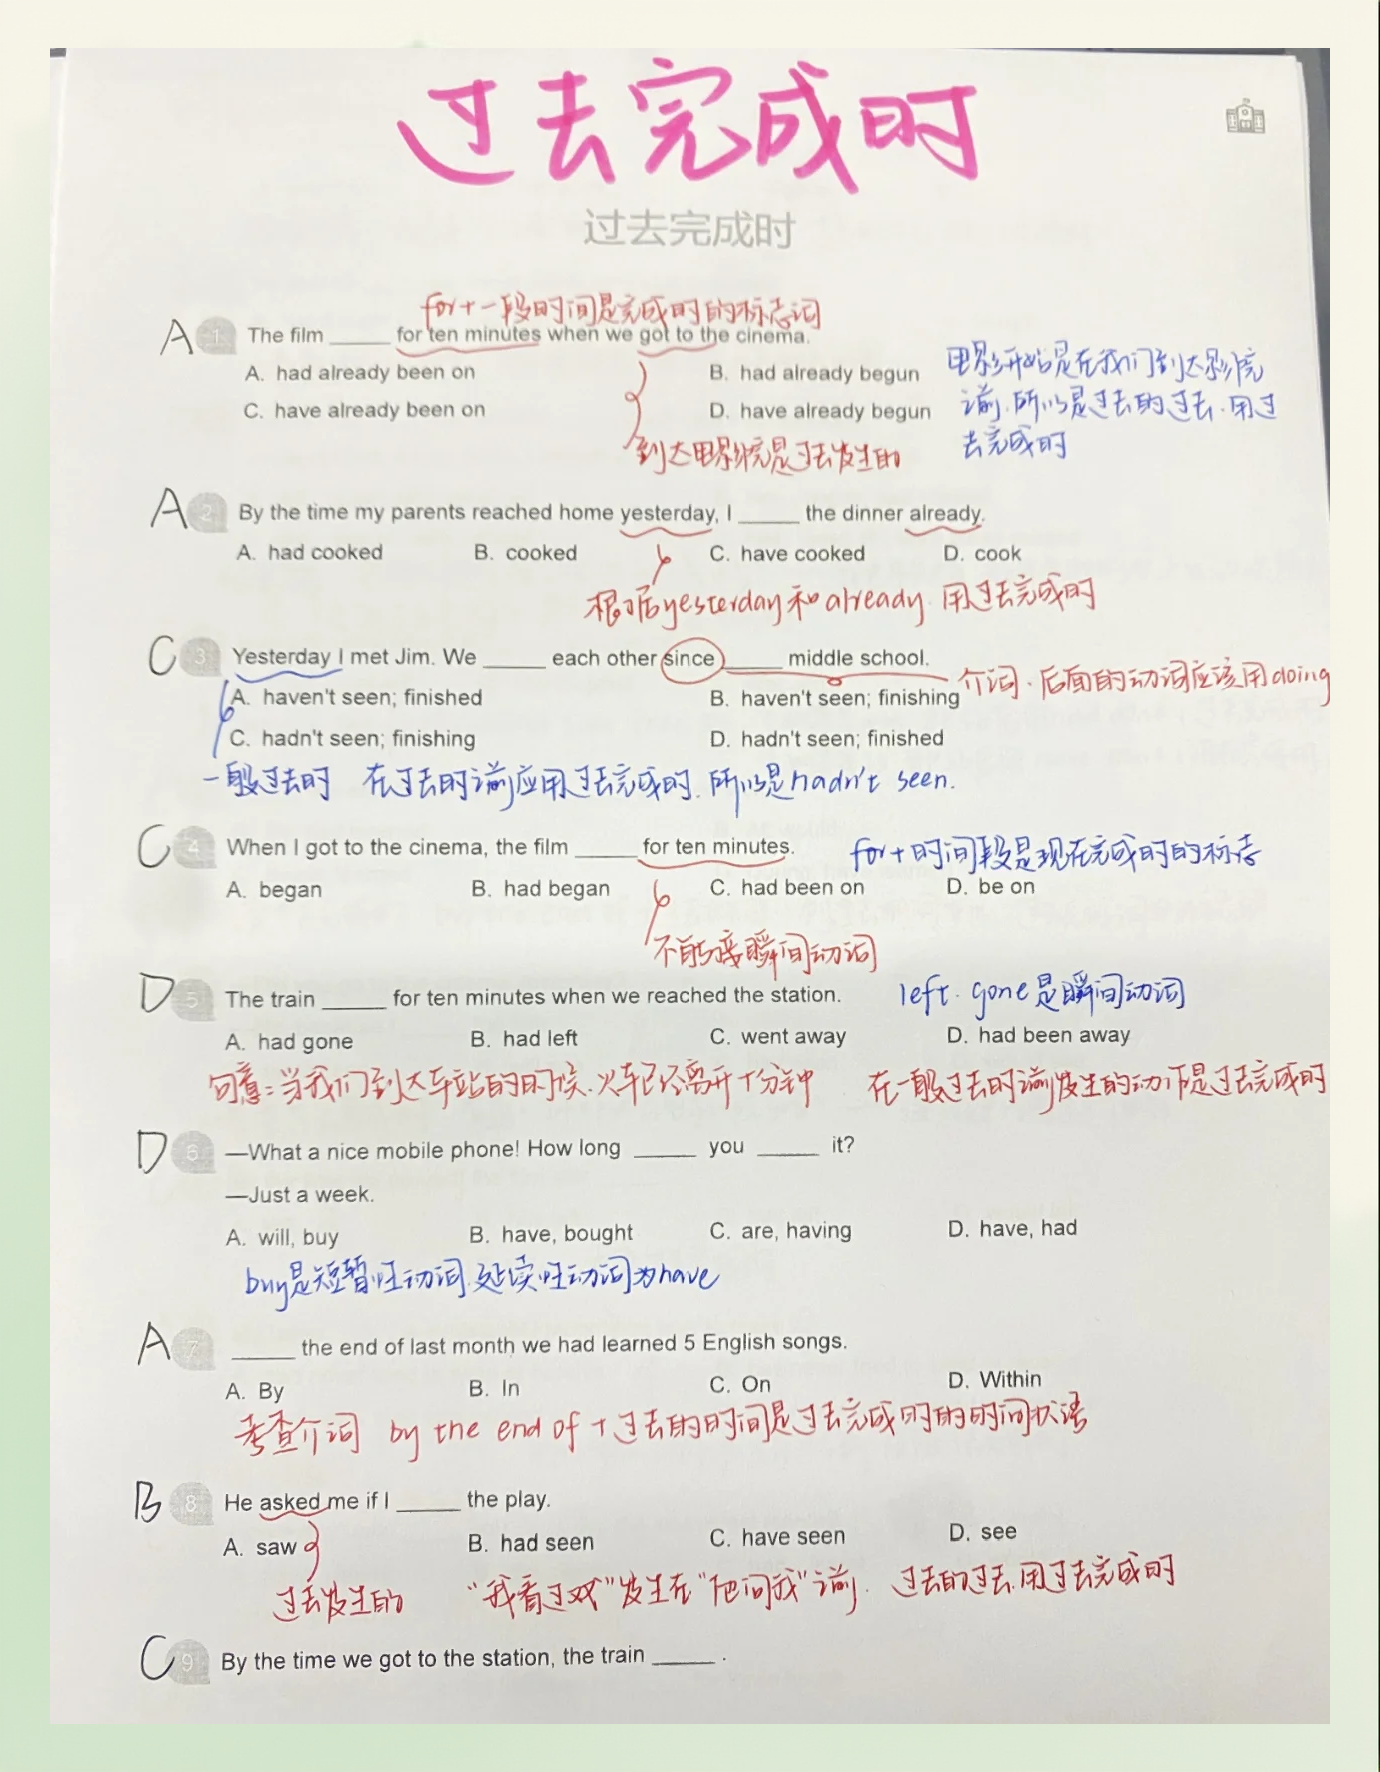 过去完成时
过去完成时
for+一段时间是完成时的标志词
A 1 The film _____ for ten minutes when we got to the cinema.
A. had already been on B. had already begun
C. have already been on D. have already begun
电影开始是在我们到达影院
前.所以是过去的过去.用过
去完成时
到达电影院是过去发生的
A 2 By the time my parents reached home yesterday, I _____ the dinner already.
A. had cooked B. cooked C. have cooked D. cook
根据yesterday和already.用过去完成时
C 3 Yesterday I met Jim. We _____ each other since _____ middle school.
介词.后面的动词应该用doing
A. haven't seen; finished B. haven't seen; finishing
C. hadn't seen; finishing D. hadn't seen; finished
一般过去时 在过去的前应用过去完成时.所以是hadn't seen.
C 4 When I got to the cinema, the film _____ for ten minutes.
for+时间段是现在完成时的标志
A. began B. had began C. had been on D. be on
不能接瞬间动词
D 5 The train _____ for ten minutes when we reached the station.
left. gone是瞬间动词
A. had gone B. had left C. went away D. had been away
句意:当我们到达车站的时候.火车已经离开十分钟 在一般过去时前发生的动作是过去完成时
D 6 —What a nice mobile phone! How long _____ you _____ it?
—Just a week.
A. will, buy B. have, bought C. are, having D. have, had
buy是短暂性动词.延续性动词为have
A 7 _____ the end of last month we had learned 5 English songs.
A. By B. In C. On D. Within
考查介词 by the end of+过去的时间是过去完成时的时间状语
B 8 He asked me if I _____ the play.
A. saw B. had seen C. have seen D. see
过去发生的 "我看过戏"发生在"他问我"前. 过去的过去.用过去完成时
C 9 By the time we got to the station, the train _____ .